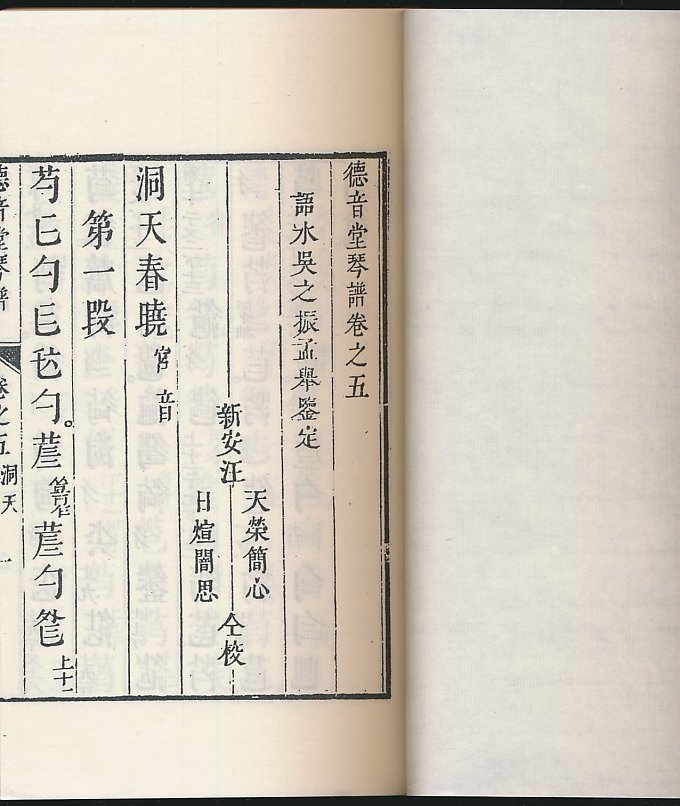 德音堂琴譜卷之五
語水吳之振孟舉鑒定
新安汪
天榮簡心
日煊闇思
仝校
洞天春曉 宮音
第一段
上十一
德音堂琴譜
卷之五 洞天
一